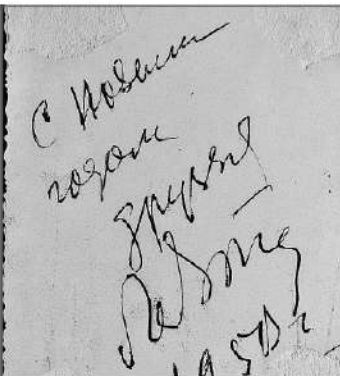 С Новым
годом
друзья
1950 г